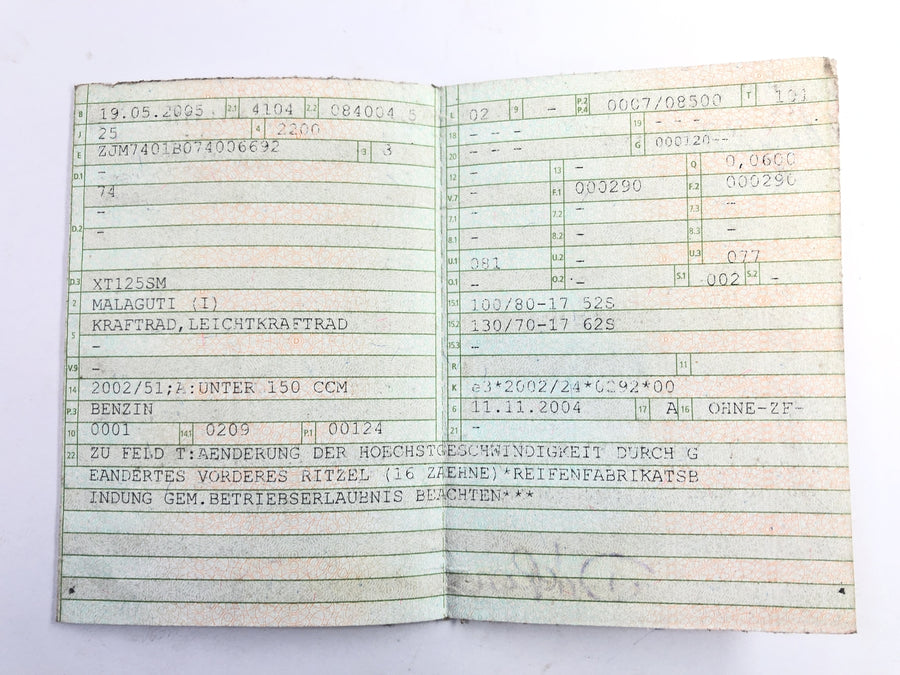 B 19.05.2005 2.1 4104 2.2 084004 5
J 25 4 2200
E ZJM7401B074006692 3 3
D.1 -
74
-
D.2 -
D.3 XT125SM
2 MALAGUTI (I)
KRAFTRAD,LEICHTKRAFTRAD
5 -
V.9 -
14 2002/51;A:UNTER 150 CCM
P.3 BENZIN
10 0001 14.1 0209 P.1 00124
L 02 9 - P.2 P.4 0007/08500 T 101
18 - - - 19 - - -
20 - - - G 000120--
12 - 13 - Q 0,0600
V.7 - F.1 000290 F.2 000290
7.1 - 7.2 - 7.3 -
8.1 - 8.2 - 8.3 -
U.1 081 U.2 - U.3 077
O.1 - O.2 - S.1 002 S.2 -
15.1 100/80-17 52S
15.2 130/70-17 62S
15.3 -
R 11
K e3*2002/24*0292*00
6 11.11.2004 17 A 16 OHNE-ZF-
21 -
22 ZU FELD T:AENDERUNG DER HOECHSTGESCHWINDIGKEIT DURCH G
EANDERTES VORDERES RITZEL (16 ZAEHNE)*REIFENFABRIKATSB
INDUNG GEM.BETRIEBSERLAUBNIS BEACHTEN***